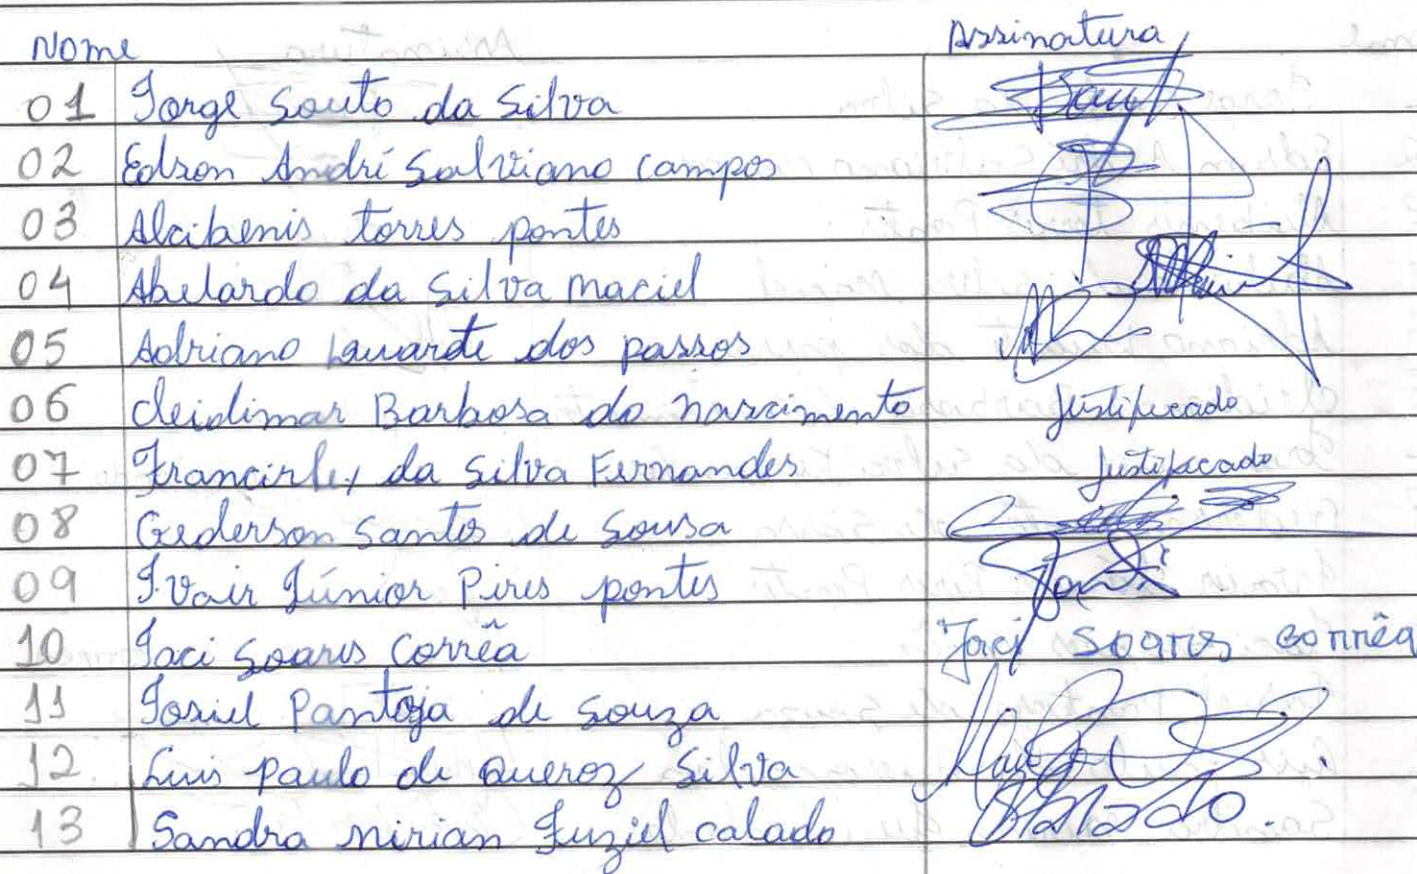 Nome Assinatura
01 Jorge Souto da Silva
02 Edson André Salviano Campos
03 Alcibenis torres pontes
04 Abelardo da Silva Maciel
05 Adriano dos passos
06 Cleidimar Barbosa do nascimento Justificado
07 Francirley da Silva Fernandes Justificado
08 Gederson Santos de Sousa
09 Ivair Júnior Pires pontes
10 Jaci Soares Corrêa Jaci Soares Corrêa
11 Josiel Pantoja de Souza
12 Luis paulo de Queroz Silva
13 Sandra mirian calado